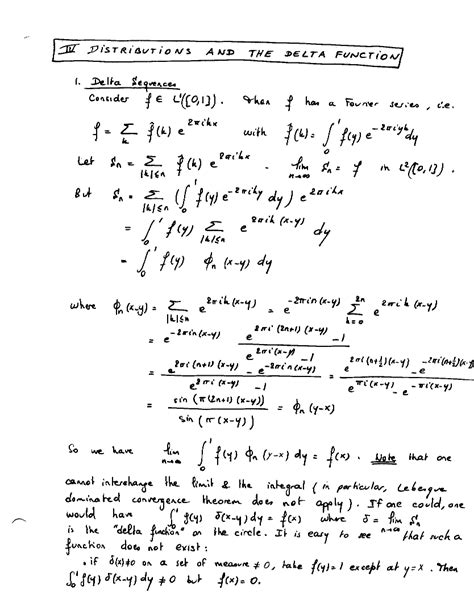 IV DISTRIBUTIONS AND THE DELTA FUNCTION
1. Delta Sequences
Consider f ∈ L²([0,1]). Then f has a Fourier series, i.e.
f = Σ_k f̂(k) e^{2πikx} with f̂(k) = ∫_0^1 f(y) e^{-2πiyk} dy
Let S_n = Σ_{|k|≤n} f̂(k) e^{2πikx}. lim_{n→∞} S_n = f in L²([0,1]).
But S_n = Σ_{|k|≤n} (∫_0^1 f(y) e^{-2πiky} dy) e^{2πikx}
= ∫_0^1 f(y) Σ_{|k|≤n} e^{2πik(x-y)} dy
= ∫_0^1 f(y) ϕ_n(x-y) dy
where ϕ_n(x-y) = Σ_{|k|≤n} e^{2πik(x-y)} = e^{-2πin(x-y)} Σ_{k=0}^{2n} e^{2πik(x-y)}
= e^{-2πin(x-y)} (e^{2πi(2n+1)(x-y)} - 1) / (e^{2πi(x-y)} - 1)
= (e^{2πi(n+1)(x-y)} - e^{-2πin(x-y)}) / (e^{2πi(x-y)} - 1) = (e^{2πi(n+½)(x-y)} - e^{-2πi(n+½)(x-y)}) / (e^{πi(x-y)} - e^{-πi(x-y)})
= sin(π(2n+1)(x-y)) / sin(π(x-y)) = ϕ_n(y-x)
So we have lim_{n→∞} ∫_0^1 f(y) ϕ_n(y-x) dy = f(x). Note that one
cannot interchange the limit & the integral (in particular, Lebesgue
dominated convergence theorem does not apply). If one could, one
would have ∫_0^1 f(y) δ(x-y) dy = f(x) where δ = lim_{n→∞} S_n
is the "delta function" on the circle. It is easy to see that such a
function does not exist:
• if δ(x)≠0 on a set of measure ≠ 0, take f(y)=1 except at y=x. Then
∫_0^1 f(y) δ(x-y) dy ≠ 0 but f(x)=0.